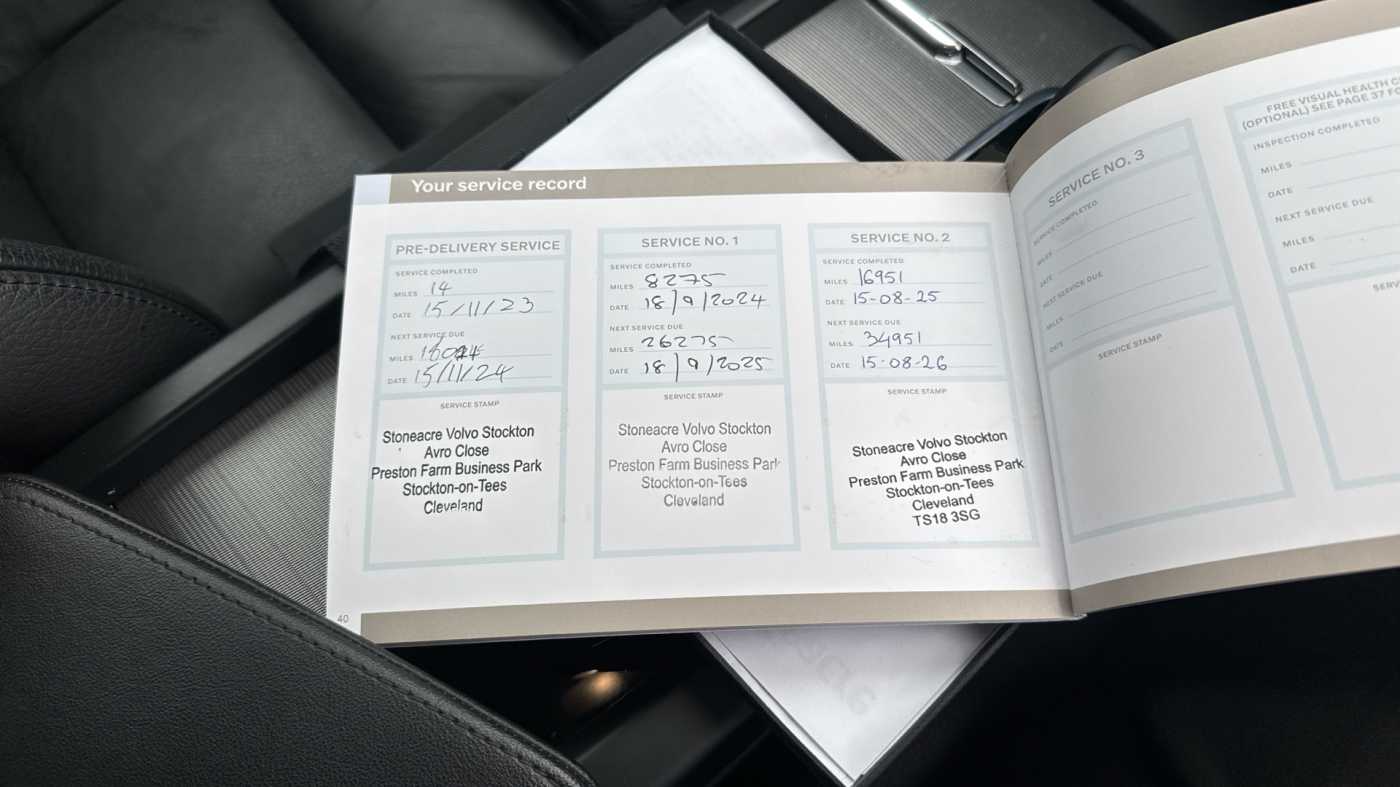 Your service record
PRE-DELIVERY SERVICE
SERVICE COMPLETED
MILES 14
DATE 15/11/23
NEXT SERVICE DUE
MILES
DATE 15/11/24
SERVICE STAMP
Stoneacre Volvo Stockton
Avro Close
Preston Farm Business Park
Stockton-on-Tees
Cleveland
SERVICE NO. 1
SERVICE COMPLETED
MILES 8275
DATE 18/9/2024
NEXT SERVICE DUE
MILES 26275
DATE 18/9/2025
SERVICE STAMP
Stoneacre Volvo Stockton
Avro Close
Preston Farm Business Park
Stockton-on-Tees
Cleveland
SERVICE NO. 2
SERVICE COMPLETED
MILES 16951
DATE 15-08-25
NEXT SERVICE DUE
MILES 34951
DATE 15-08-26
SERVICE STAMP
Stoneacre Volvo Stockton
Avro Close
Preston Farm Business Park
Stockton-on-Tees
Cleveland
TS18 3SG
40
SERVICE NO. 3
SERVICE COMPLETED
MILES
DATE
NEXT SERVICE DUE
MILES
DATE
SERVICE STAMP
FREE VISUAL HEALTH C
(OPTIONAL) SEE PAGE 37 FO
INSPECTION COMPLETED
MILES
DATE
NEXT SERVICE DUE
MILES
DATE
SERV